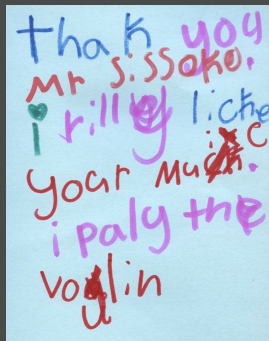 thak you
Mr Sissoko.
i rilly licke
your Music.
i paly the
voylin